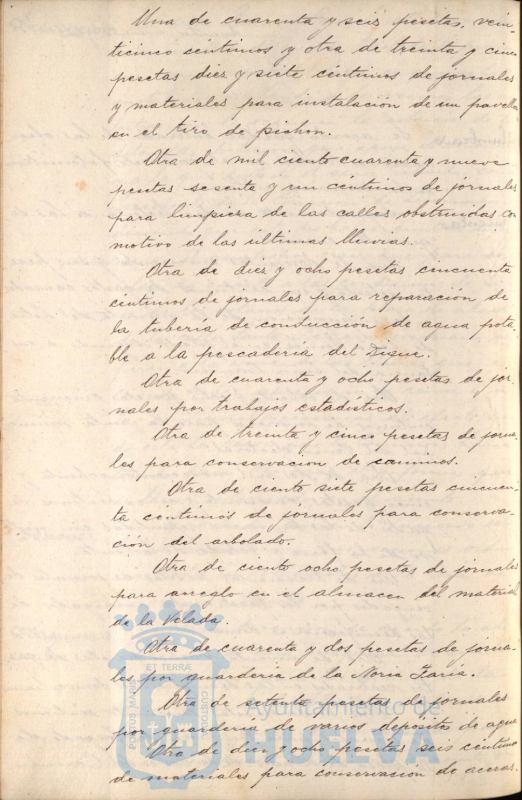 Una de cuarenta y seis pesetas, vein-
ticinco céntimos y otra de treinta y cinco
pesetas diez y siete céntimos de jornales
y materiales para instalación de un pavellon
en el tiro de pichon.
Otra de mil ciento cuarenta y nueve
pesetas sesenta y un céntimos de jornales
para limpieza de las calles obstruidas con
motivo de las últimas lluvias.
Otra de diez y ocho pesetas cincuenta
céntimos de jornales para reparación de
la tubería de conducción de agua pota-
ble á la pescadería del Dique.
Otra de cuarenta y ocho pesetas de jor-
nales por trabajos estadísticos.
Otra de treinta y cinco pesetas de jorna-
les para conservacion de caminos.
Otra de ciento siete pesetas cincuen-
ta céntimos de jornales para conserva-
ción del arbolado.
Otra de ciento ocho pesetas de jornales
para arreglo en el almacen del material
de la Velada.
Otra de cuarenta y dos pesetas de jorna-
les por guardería de la Noria
Otra de setenta pesetas de jornales
por guarderia de varios depósitos de agua
Otra de diez y ocho pesetas seis céntimos
de materiales para conservación de aceras.
PORTUS MARIS ET TERRÆ CUSTODIA
Ayuntamiento de
HUELVA